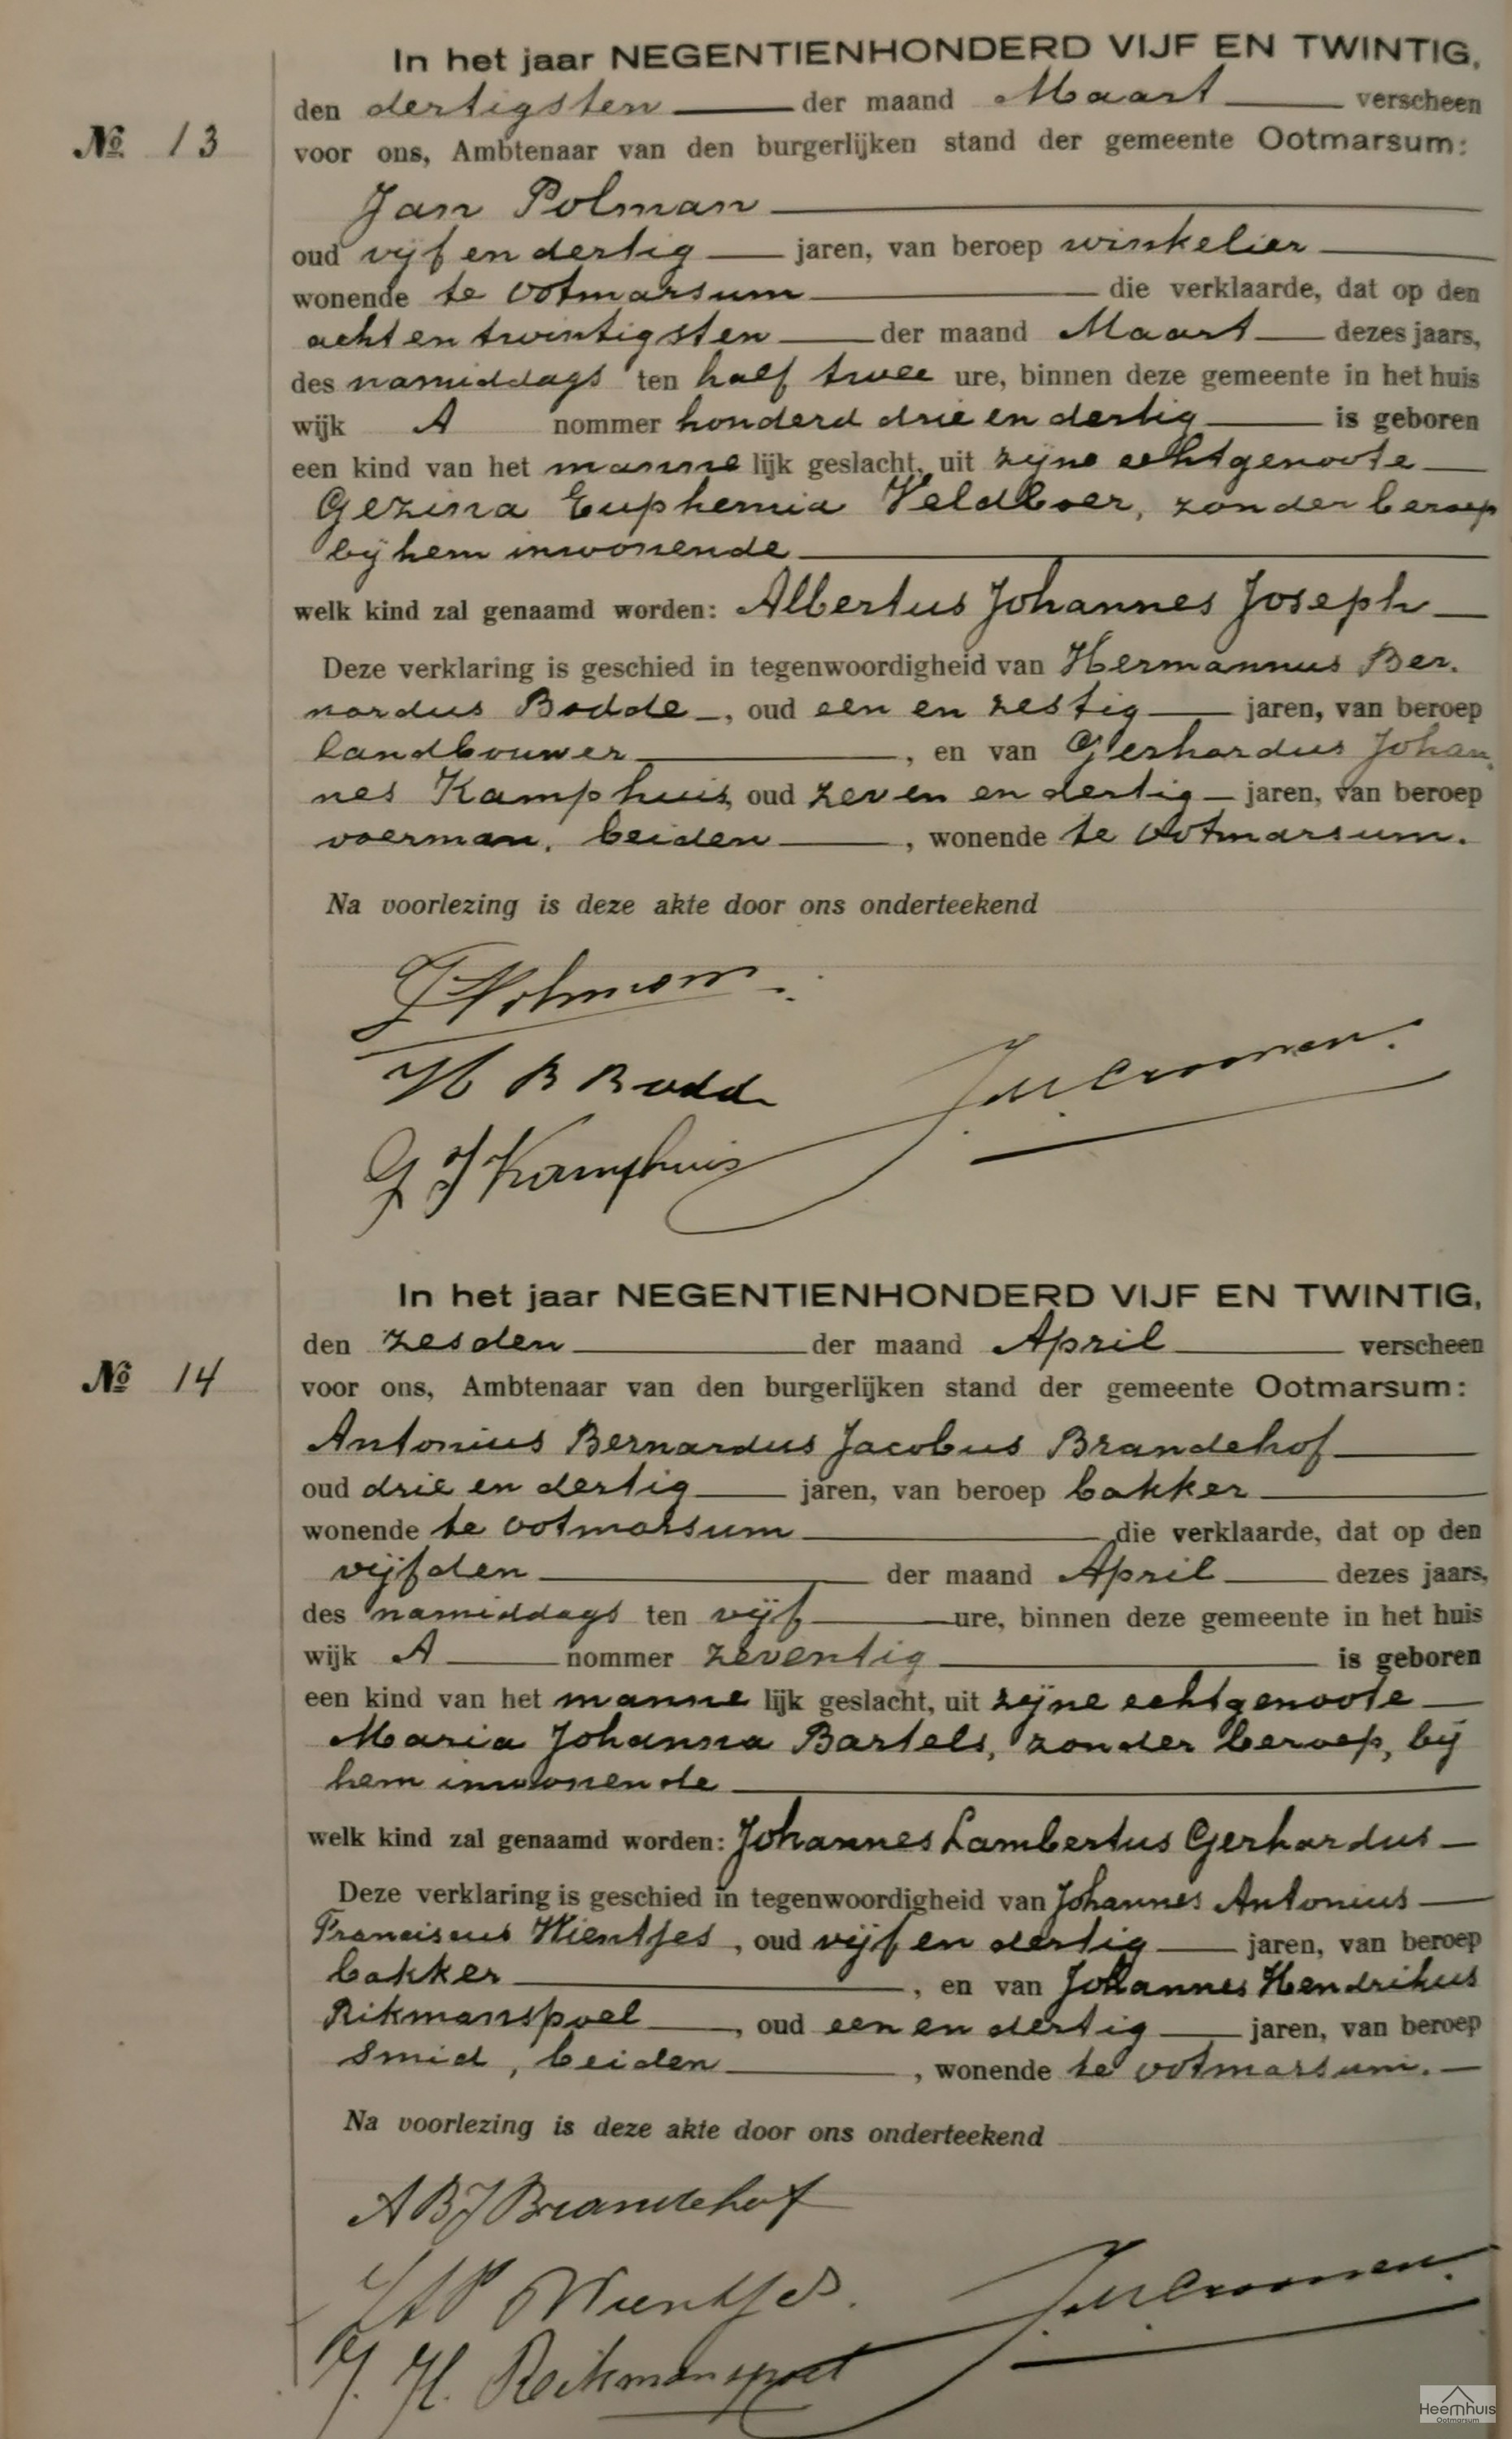 In het jaar NEGENTIENHONDERD VIJF EN TWINTIG,
den dertigsten der maand Maart verscheen
№ 13
voor ons, Ambtenaar van den burgerlijken stand der gemeente Ootmarsum:
Jan Polman
oud vijf en dertig jaren, van beroep winkelier
wonende te Ootmarsum die verklaarde, dat op den
acht en twintigsten der maand Maart dezes jaars,
des namiddags ten half twee ure, binnen deze gemeente in het huis
wijk A nommer honderd drie en dertig is geboren
een kind van het manne lijk geslacht, uit zijne echtgenoote
Gezina Euphemia Veldboer, zonder beroep
bij hem inwonende
welk kind zal genaamd worden: Albertus Johannes Joseph
Deze verklaring is geschied in tegenwoordigheid van Hermannus Ber.
nardus Bodde, oud een en zestig jaren, van beroep
landbouwer, en van Gerhardus Johan
nes Kamphuis, oud zeven en dertig jaren, van beroep
voerman, beiden, wonende te Ootmarsum.
Na voorlezing is deze akte door ons onderteekend
J Polman
H B Bodde
G J Kamphuis
In het jaar NEGENTIENHONDERD VIJF EN TWINTIG,
den zesden der maand April verscheen
№ 14
voor ons, Ambtenaar van den burgerlijken stand der gemeente Ootmarsum:
Antonius Bernardus Jacobus Brandehof
oud drie en dertig jaren, van beroep bakker
wonende te Ootmarsum die verklaarde, dat op den
vijfden der maand April dezes jaars,
des namiddags ten vijf ure, binnen deze gemeente in het huis
wijk A nommer zeventig is geboren
een kind van het manne lijk geslacht, uit zijne echtgenoote
Maria Johanna Bartels, zonder beroep, bij
hem inwonende
welk kind zal genaamd worden: Johannes Lambertus Gerhardus
Deze verklaring is geschied in tegenwoordigheid van Johannes Antonius
Franciscus Wientjes, oud vijf en dertig jaren, van beroep
bakker, en van Johannes Hendrikus
Rikmanspoel, oud een en dertig jaren, van beroep
smid, beiden, wonende te Ootmarsum.
Na voorlezing is deze akte door ons onderteekend
A B J Brandehof
Wientjes.
J. H. Rikmanspoel
Heemhuis
Ootmarsum